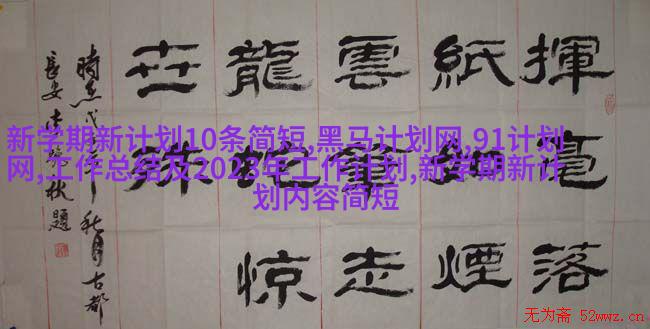 揮毫落
紙煙
雲走
龍蛇惊
世殊
秋月古都
長安題
新学期新计划10条简短,黑马计划网,91计划
网,工作总结及2023年工作计划,新学期新计
划内容简短
无为斋 52wwz.cn